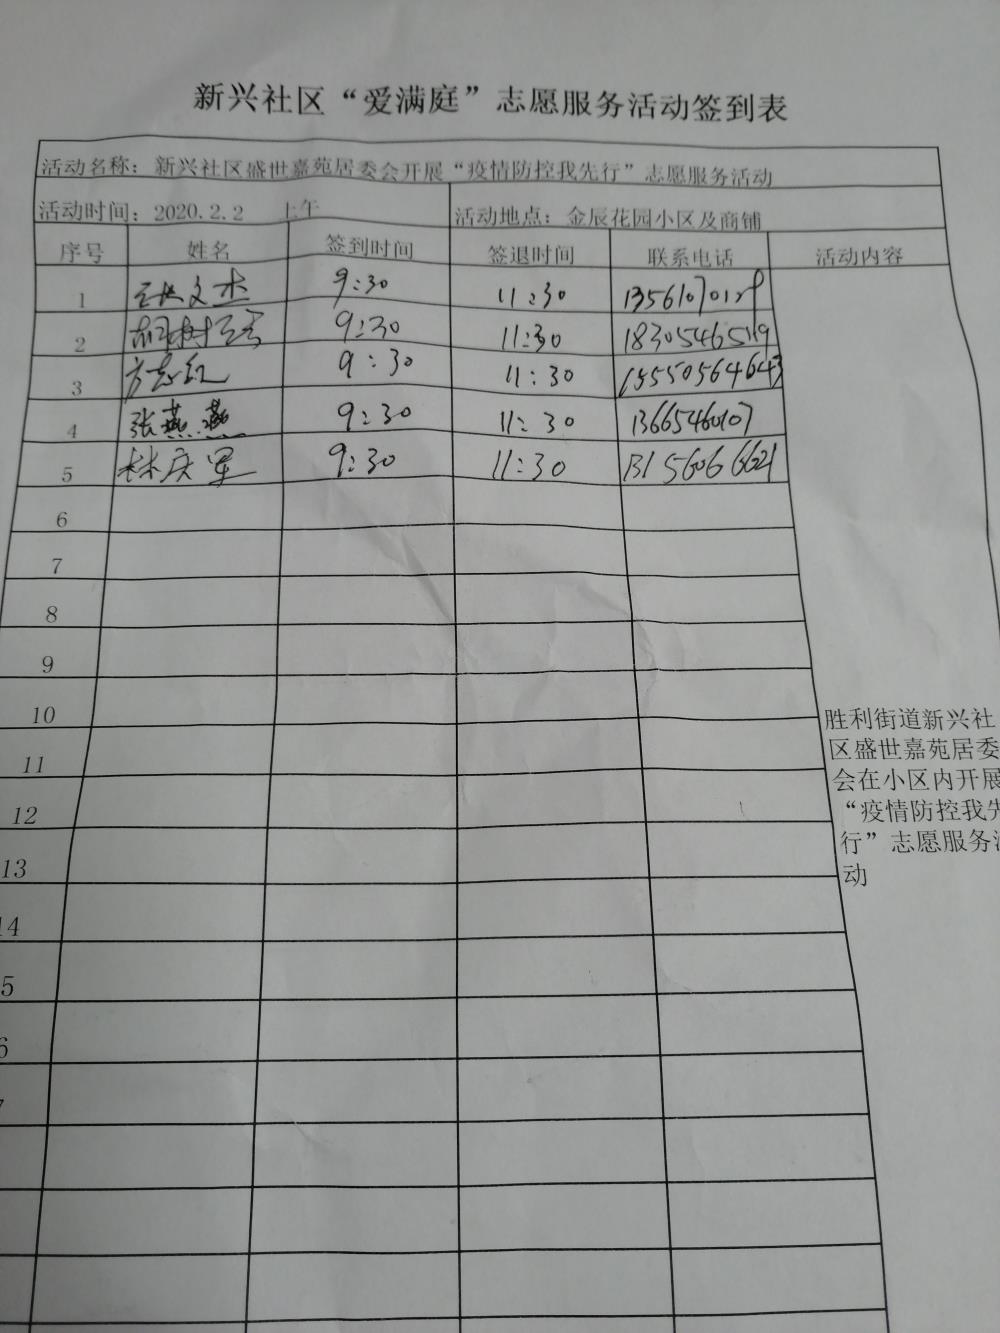 新兴社区“爱满庭”志愿服务活动签到表
活动名称：新兴社区盛世嘉苑居委会开展“疫情防控我先行”志愿服务活动
活动时间：2020.2.2 上午 活动地点：金辰花园小区及商铺
序号 姓名 签到时间 签退时间 联系电话 活动内容
1 文杰 9:30 11:30
2 胡树 9:30 11:30 18305465119
3 方志红 9:30 11:30 15550564643
4 张燕燕 9:30 11:30 13665460107
5 林庆军 9:30 11:30 13156066621
6
7
8
9
10
11
12
13
14
5
6
7
胜利街道新兴社
区盛世嘉苑居委
会在小区内开展
“疫情防控我先
行”志愿服务活
动